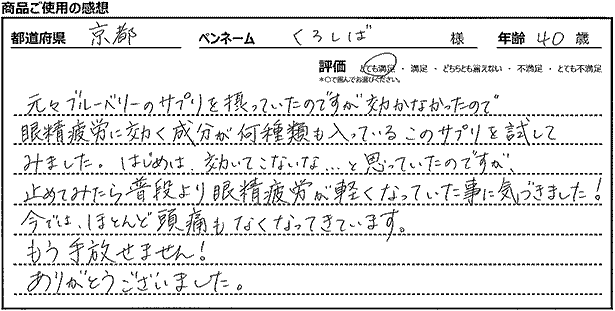 商品ご使用の感想
都道府県 京都 ペンネーム くろしば 様 年齢 40 歳
評価 とても満足・満足・どちらとも言えない・不満足・とても不満足
*○で囲んでお選びください。
元々ブルーベリーのサプリを摂っていたのですが効かなかったので
眼精疲労に効く成分が何種類も入っているこのサプリを試して
みました。はじめは、効いてこないな…と思っていたのですが、
止めてみたら普段より眼精疲労が軽くなっていた事に気づきました!
今では、ほとんど頭痛もなくなってきています。
もう手放せません!
ありがとうございました。